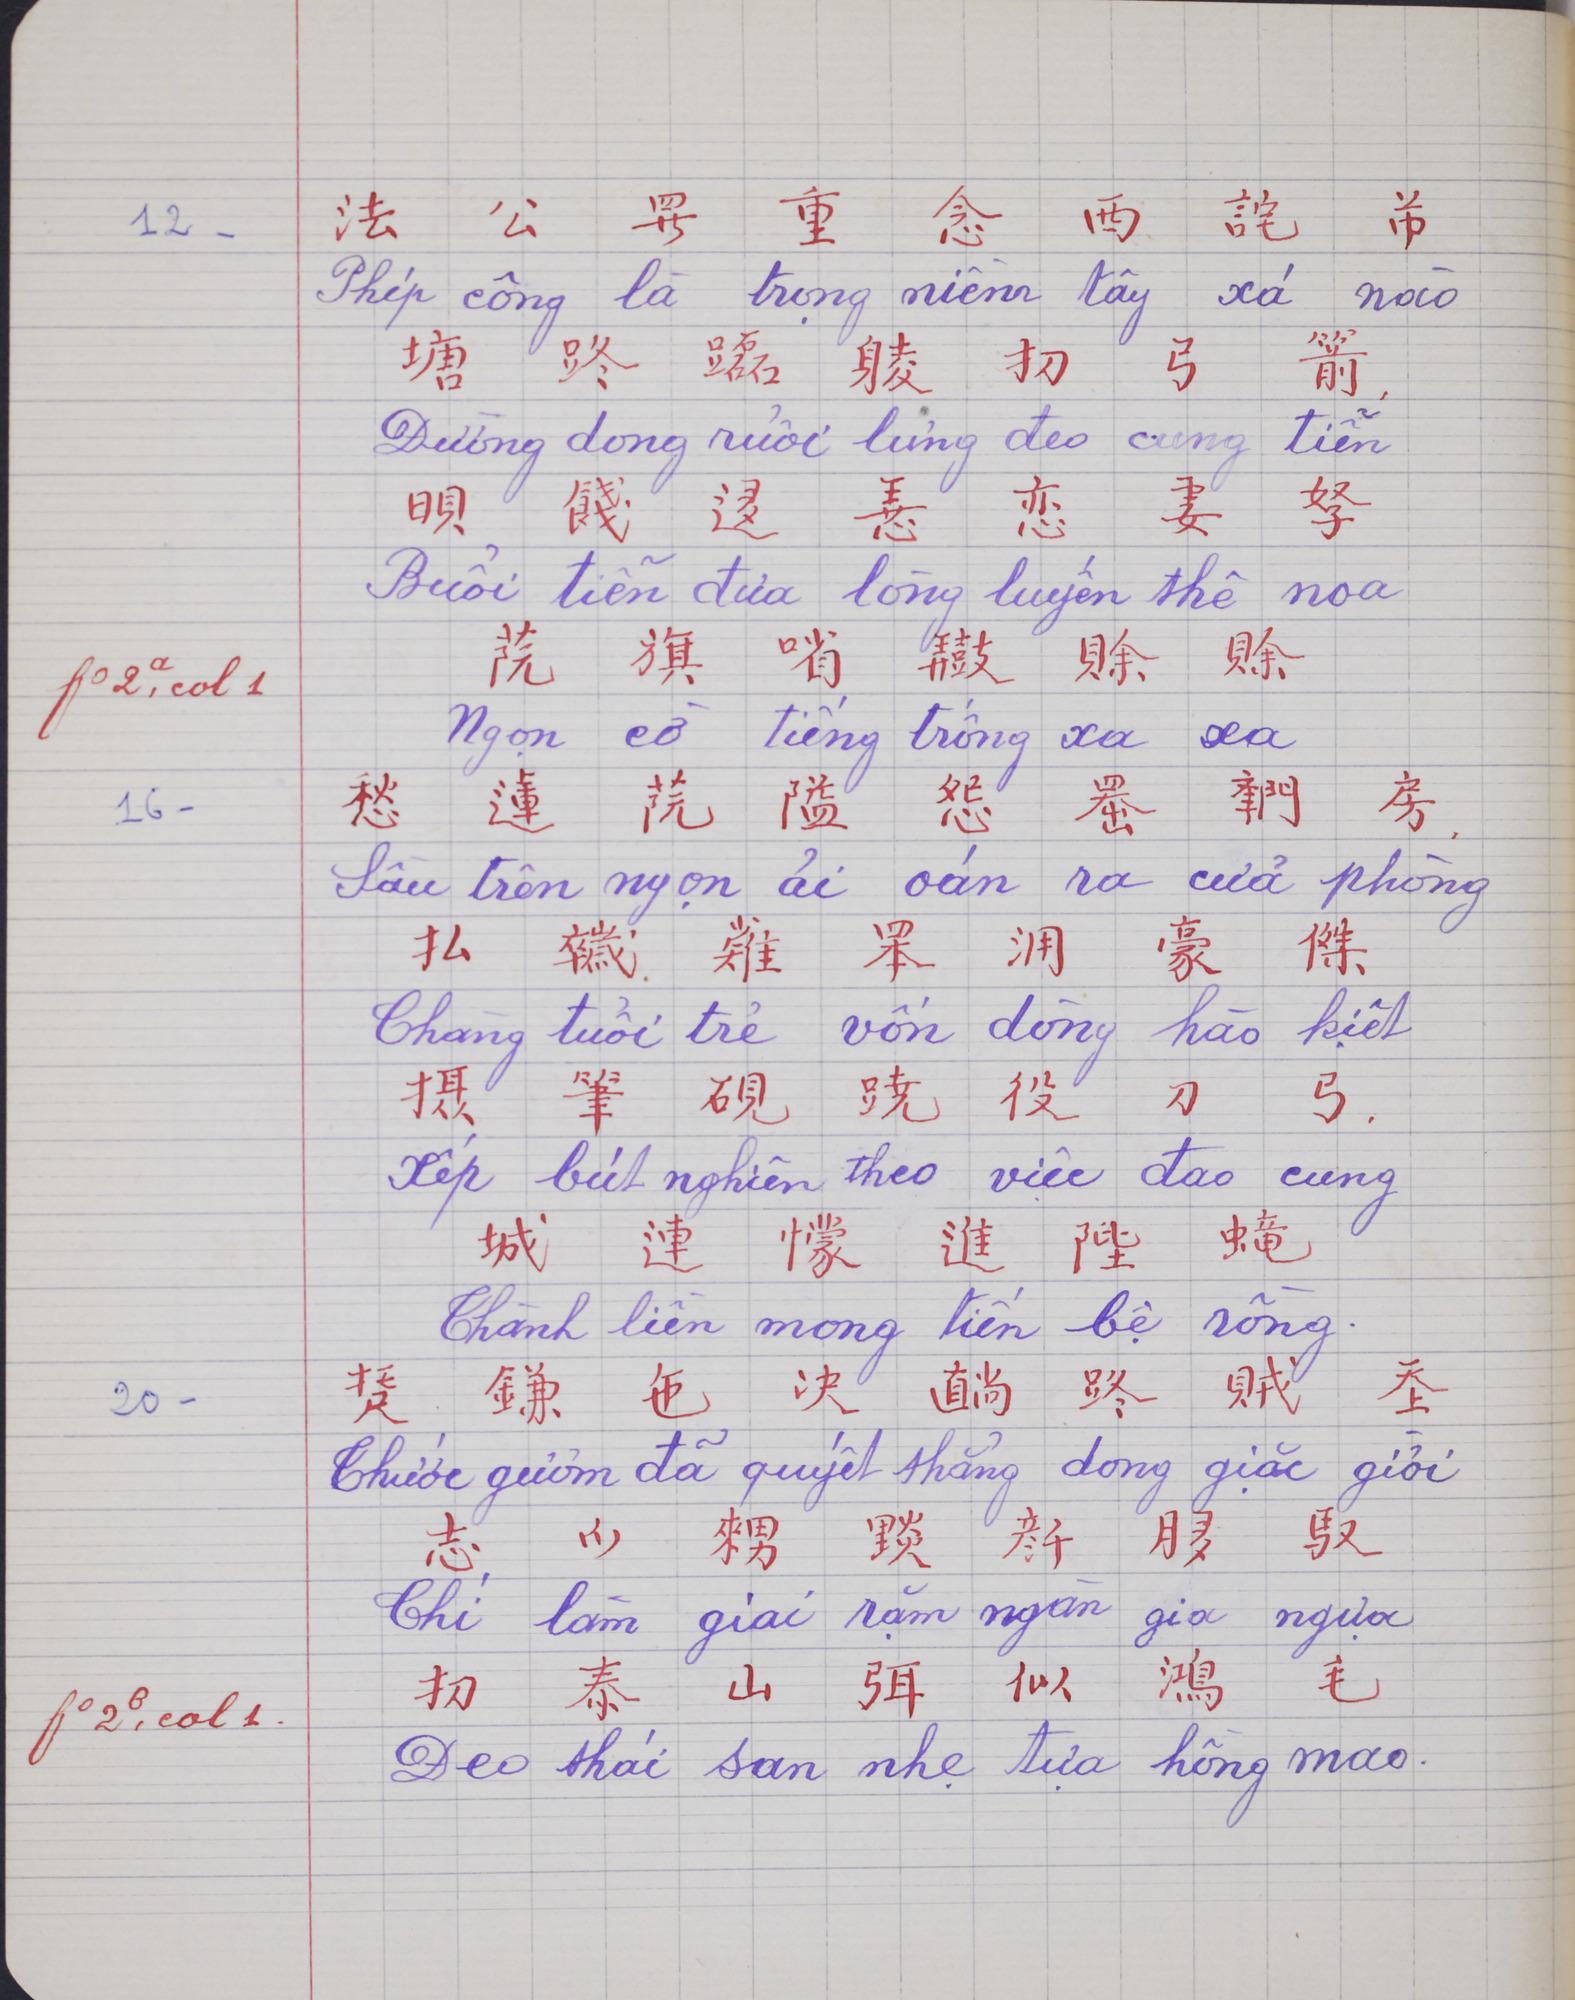 12 - 法 公 𱺵 重 念 西 詫 𱜢
Phép công là trọng niềm tây xá nào
塘 𨀐 𨄴 𨉞 扨 弓 箭
Đường dong ruổi lưng đeo cung tiễn
𣇜 餞 𨖅 𢚸 恋 妻 孥
Buổi tiễn đưa lòng luyến thê noa
fº 2ª, col 1 𦰟 旗 㗂 𪔠 賒 賒
Ngọn cờ tiếng trống xa xa
16 - 愁 𨕭 𦰟 隘 怨 𦋦 𨷯 房
Sầu trên ngọn ải oán ra cửa phòng
払 𢆫 𥘷 𦉼 𣳔 豪 傑
Chàng tuổi trẻ vốn dòng hào kiệt
摂 筆 硯 蹺 役 刀 弓
Xếp bút nghiên theo việc đao cung
城 連 懞 進 陛 蠬
Thành liền mong tiến bệ rồng.
20 - 鎌 㐌 决 𨀐 賊 𡗶
Thước gươm đã quyết thẳng dong giặc giời
志 𫜵 𤳇 𨤮 𠦳 𦝄 馭
Chí làm giai rặm ngàn gia ngựa
fº 2ᵇ, col 1. 扨 泰 山 弭 似 鴻 毛
Deo thái san nhẹ tựa hồng mao.